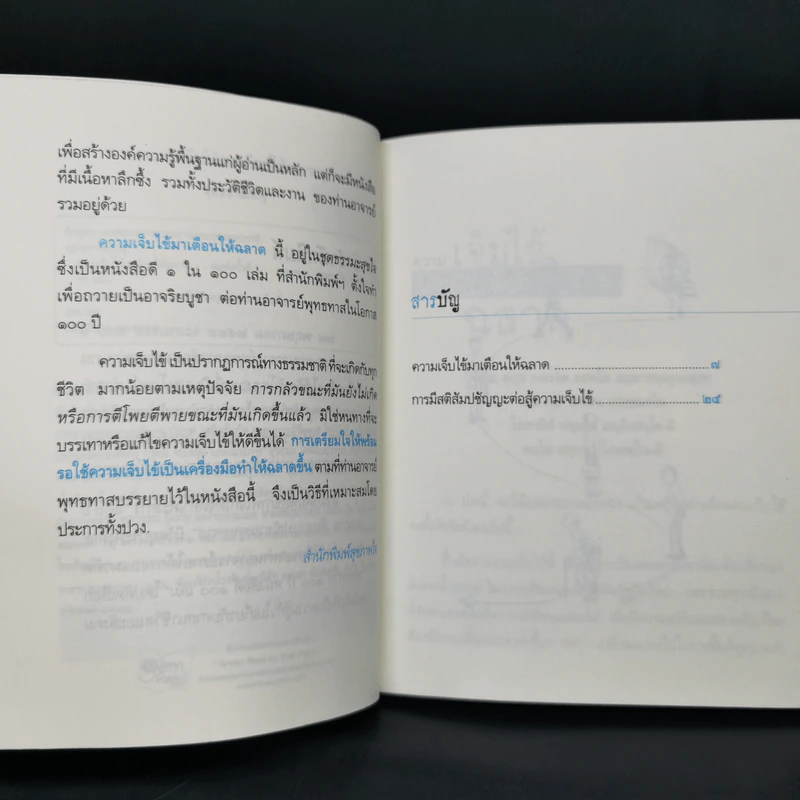 เพื่อสร้างองค์ความรู้พื้นฐานแก่ผู้อ่านเป็นหลัก แต่ก็จะมีหนังสือ
ที่มีเนื้อหาลึกซึ้ง รวมทั้งประวัติชีวิตและงาน ของท่านอาจารย์
รวมอยู่ด้วย
ความเจ็บไข้มาเตือนให้ฉลาด นี้ อยู่ในชุดธรรมะสุขใจ
ซึ่งเป็นหนังสือดี ๑ ใน ๑๐๐ เล่ม ที่สำนักพิมพ์ฯ ตั้งใจทำ
เพื่อถวายเป็นอาจริยบูชา ต่อท่านอาจารย์พุทธทาสในโอกาส
๑๐๐ ปี
ความเจ็บไข้ เป็นปรากฏการณ์ทางธรรมชาติ ที่จะเกิดกับทุก
ชีวิต มากน้อยตามเหตุปัจจัย การกลัวขณะที่มันยังไม่เกิด
หรือการตีโพยตีพายขณะที่มันเกิดขึ้นแล้ว มิใช่หนทางที่จะ
บรรเทาหรือแก้ไขความเจ็บไข้ให้ดีขึ้นได้ การเตรียมใจให้พร้อม
รอใช้ความเจ็บไข้เป็นเครื่องมือทำให้ฉลาดขึ้น ตามที่ท่านอาจารย์
พุทธทาสบรรยายไว้ในหนังสือนี้ จึงเป็นวิธีที่เหมาะสมโดย
ประการทั้งปวง.
สำนักพิมพ์สุขภาพใจ
สารบัญ
ความเจ็บไข้มาเตือนให้ฉลาด ๗
การมีสติสัมปชัญญะต่อสู้ความเจ็บไข้ ๒๕